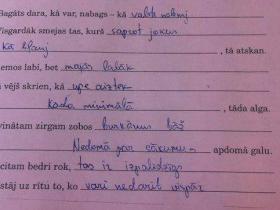 Bagāts dara, kā var, nabags – kā valdz nobmj
Visgardāk smejas tas, kurš saprot jokus
Kā kliedz, tā atskan.
iemos labi, bet mājās labāk
ā vējš skrien, kā upe aiztek
Kāda minimālā, tāda alga.
vinātam zirgam zobos burkānus bāž
Nedomā par cākumu – apdomā galu.
citam bedri rok, tas ir izpalīdzīgs
stāj uz rītu to, ko vari nedarīt vispār